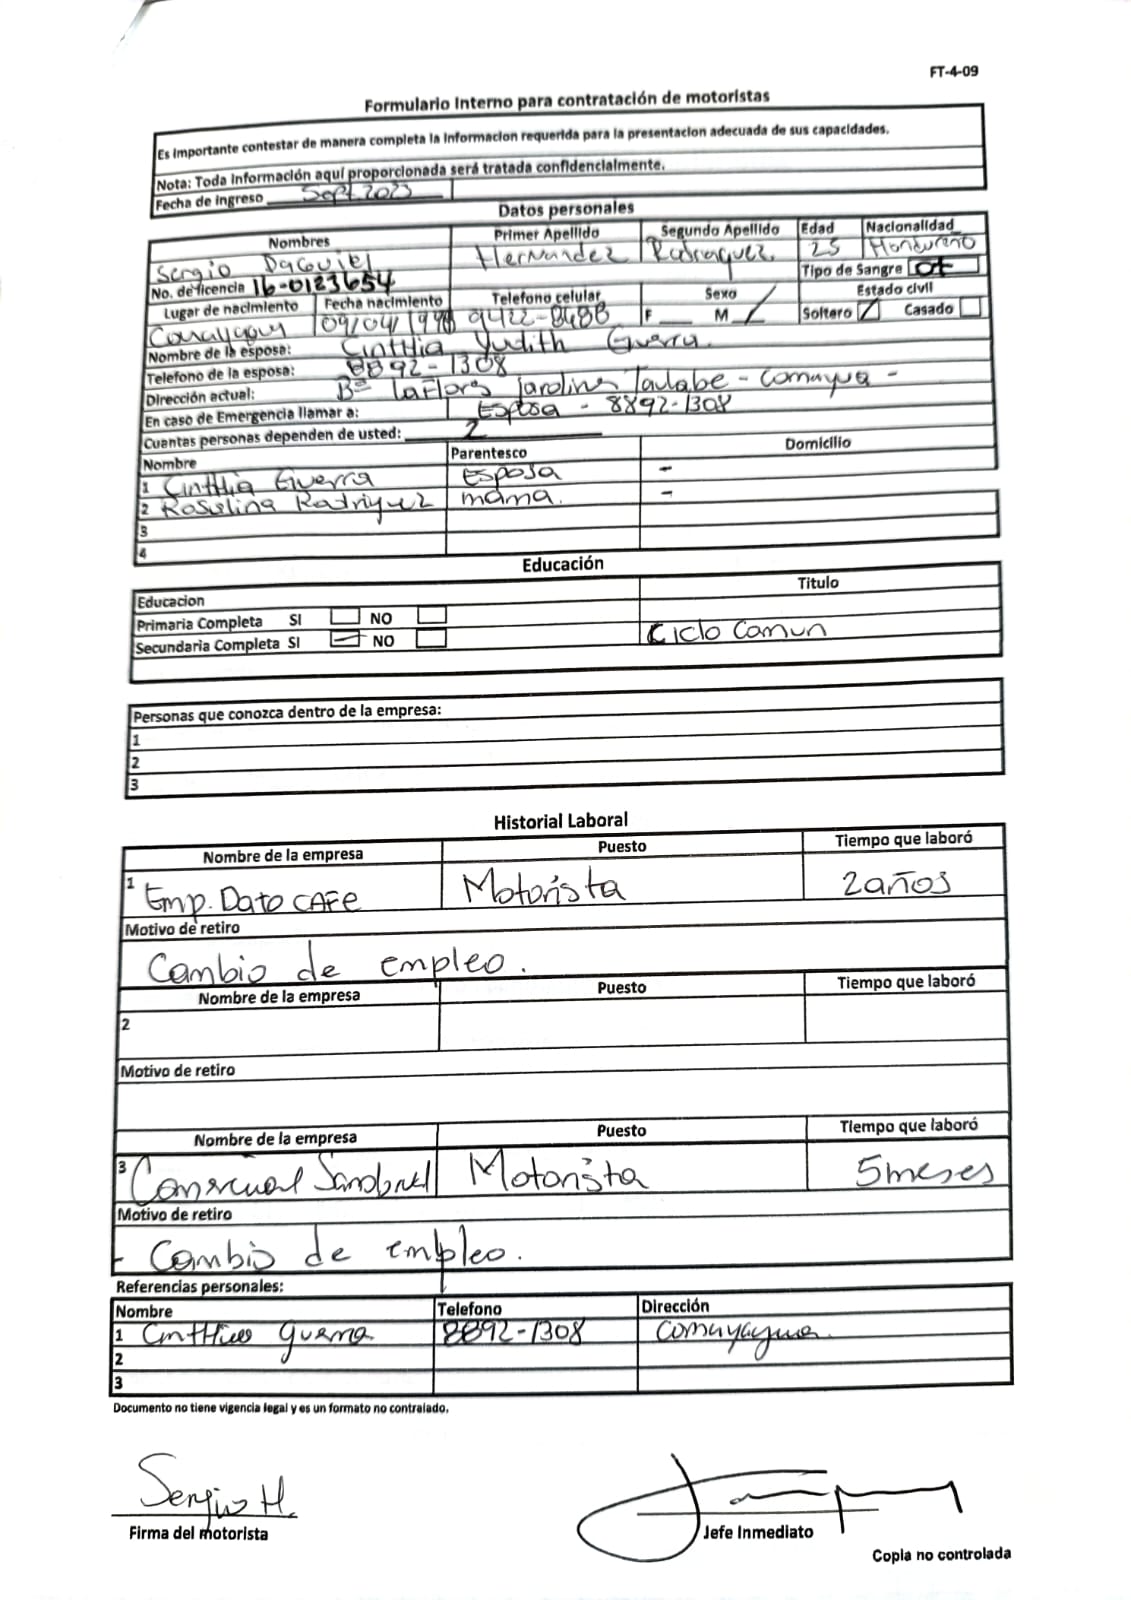 FT-4-09
Formulario Interno para contratación de motoristas
Es importante contestar de manera completa la informacion requerida para la presentacion adecuada de sus capacidades.
Nota: Toda información aquí proporcionada será tratada confidencialmente.
Fecha de ingreso Sept. 2023
Datos personales
Nombres Primer Apellido Segundo Apellido Edad Nacionalidad
Sergio Hernandez 25 Hondureño
No. de licencia 16-0123654 Tipo de Sangre O+
Lugar de nacimiento Fecha nacimiento Telefono celular Sexo Estado civil
09/04/1998 9422-8488 F M Soltero Casado
Nombre de la esposa: Cinthia Yudith Guerra.
Telefono de la esposa: 8892-1308
Dirección actual: Bº La Flores jardines Taulabe - Comayua -
En caso de Emergencia llamar a: Esposa - 8892-1308
Cuantas personas dependen de usted: 2
Nombre Parentesco Domicilio
1 Cinthia Guerra Esposa -
2 Roselina Rodriguez mama. -
3
4
Educación
Educacion Titulo
Primaria Completa SI NO
Secundaria Completa SI NO Ciclo Comun
Personas que conozca dentro de la empresa:
1
2
3
Historial Laboral
Nombre de la empresa Puesto Tiempo que laboró
1 Emp. Dato CAFE Motorista 2 años
Motivo de retiro
Cambio de empleo.
Nombre de la empresa Puesto Tiempo que laboró
2
Motivo de retiro
Nombre de la empresa Puesto Tiempo que laboró
3 Motorista 5 meses
Motivo de retiro
- Cambio de empleo.
Referencias personales:
Nombre Telefono Dirección
1 Guerra 8892-1308 Comayagua.
2
3
Documento no tiene vigencia legal y es un formato no contralado.
Sergio H.
Firma del motorista Jefe Inmediato
Copia no controlada